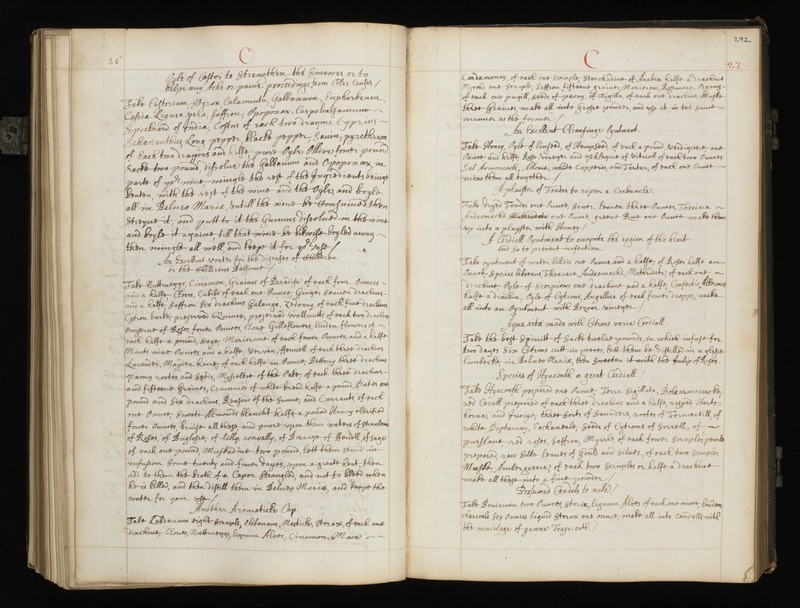 26
C
Oyle of Castor to strengthen the Sinewes or to
helpe any Ache or paine proceeding from Cold Causes /
Take Castoreum, Styrax Calamita, Galbanum, Euphorbium,
Cassia Lignea, Saffron, Opoponax, Carpobalsamum
Spicknard of India, Costus of each two dragms Cyprius
Long pepper, blacke pepper, Savin, pyrethrum
of each two dragms and halfe, pure Oyle Olive fower pound
Sacke two pound dissolve the Galbanum and Opoponax, in
parte of the wine mingle the rest of the Ingredients being
beaten, with the rest of the wine and the Oyle, and boyle
all in Balneo Maria, untill the wine be Consumed then
streyne it, and putt to it the Gumms dissolved in the wine
and boyle it againe till that wine be likewise boyled away
then mingle all well and keepe it for yor use /
An Excellent water for the diseases of Children
or the Childrens Balsome /
Take Nuttmeggs, Cinamon, Graines of Paradise of each four Ounces
and a halfe Cloves, Cubebs of each one Ounce, Ginger seaven drachms
and a halfe, Saffron six drachms Galanga, Zedoary, of each five drachms
Cytron barke, preserved Quinces, preserved wallnutts of each two drachms
Conserve of Roses fower Ounces, Clove Gilloflowers, linden flowers of
each halfe a pound, Sage, Marioram of each fower Ounces, and a halfe
Mints nine Ounces and a halfe Vervin, ffennell of each three drachms
Lavender, Mayden haire of each halfe an Ounce, Bettony three drachms
Peiony rootes and seeds, Misseltoe of the Oake of each three drachms
and fifteene Graines, Crummes of white bread halfe a pound Dates one
pound and six drachms, Reasons of the Sunne, and Currants of each
one Ounce, sweete Almonds blancht halfe a pound Honey Clarified
fower Ounces, bruise all these, and powre upon them waters of
of Roses, of Buglosse, of lilly convally, of Burrage of ffenell of Sage
of each one pound, Muskadine two pound, lett them stand in
infusion some twenty and fower dayes, upon a greate heat, then
add to them the flesh of a Capon strangled, and not to bleed when
he is killed, and then distill them in Balneo Maria, and keepe the
water for your use /
Another Aromaticke Cap
Take Labdanum eight scruples, Olibanum, Mastick, Storax, of each one
drachme, Cloves, Nuttmeggs, Lignum Aloes, Cinamon, Mace
292
C
27
Cardamoms, of each one scruple, Stoechados of Arabia halfe a drachme
Myrrh one scruple, Saffron fifteene graines, Marioram Rosmary,
of each one pugill, seeds of peiony, of Nigella, of each one drachme Muske
three Graines, make all into grosse powder, and use it in the same
manner as the former /
An Excellent Cleansinge Oyntment.
Take Honey, Oyle of linseed, of Hempseed, of each a pound Verdigreece, one
Ounce and halfe Rose vineger and of Vitrioll of each two Ounces
Sal Armoniack, Allome, white Copperis, and Tartar, of each one Ounce
mixe them all together
A plaister of Toades to ripen a Carbuncle.
Take dryed Toades one Ounce, sweete leaven three Ounces, Theriaca
Andromachi one Ounce, greene Rue one Ounce make them
up into a playster with Honey /
A Cordiall Oyntment to annoynte the region of the heart
and so to prevent infection
Take oyntment of water lillies one Ounce and a halfe, of Roses halfe an
Ounce, Species liberans, Theriaca, Andromachi, Mithridate, of each one
drachme Oyle of Scorpions one drachme and a halfe, Confectio Alkermes
halfe a drachm, Oyle of Cytrons, Angellica of each fower dropps, make
all into an Oyntment with Bezoar vineger /
Aqua vitae made with Citrons verie Cordiall.
Take the best Spiritt of Sacke twelve pounds, in which infuse for
two dayes six Citrons cutt in peeces, Lett them be distilled in a glasse
limbecke in Balneo Maria, then sweeten it with the Julip of Roses.
Species of Hyacinth a great Cordiall /
Take Hyacinth prepared one Ounce, Terra Sigillata, Bolearmeniacke
red Corall prepared of each three drachms and a halfe, rasped Harts
horne, and Ivorye, three sorts of Saunders, rootes of Tormentill of
white Diptanny, Cochineale, seeds of Cytrons of Sorrell, of
purslane red roses, Saffron, Myrrh of each fower scruples pearle
prepared, raw silke leaves of Gould and silver, of each two scruples
Muske, Ambergreece, of each two scruples or halfe a drachme
make all these into a fine powder /
Perfumed Candels to make /
Take Benjamin two Ounces, Storax, Lignum Aloes of each one ounce, linden
charcoale six Ounces liquid Storax one ounce, make all into Candells with
the mucilage of gumme Tragacath /